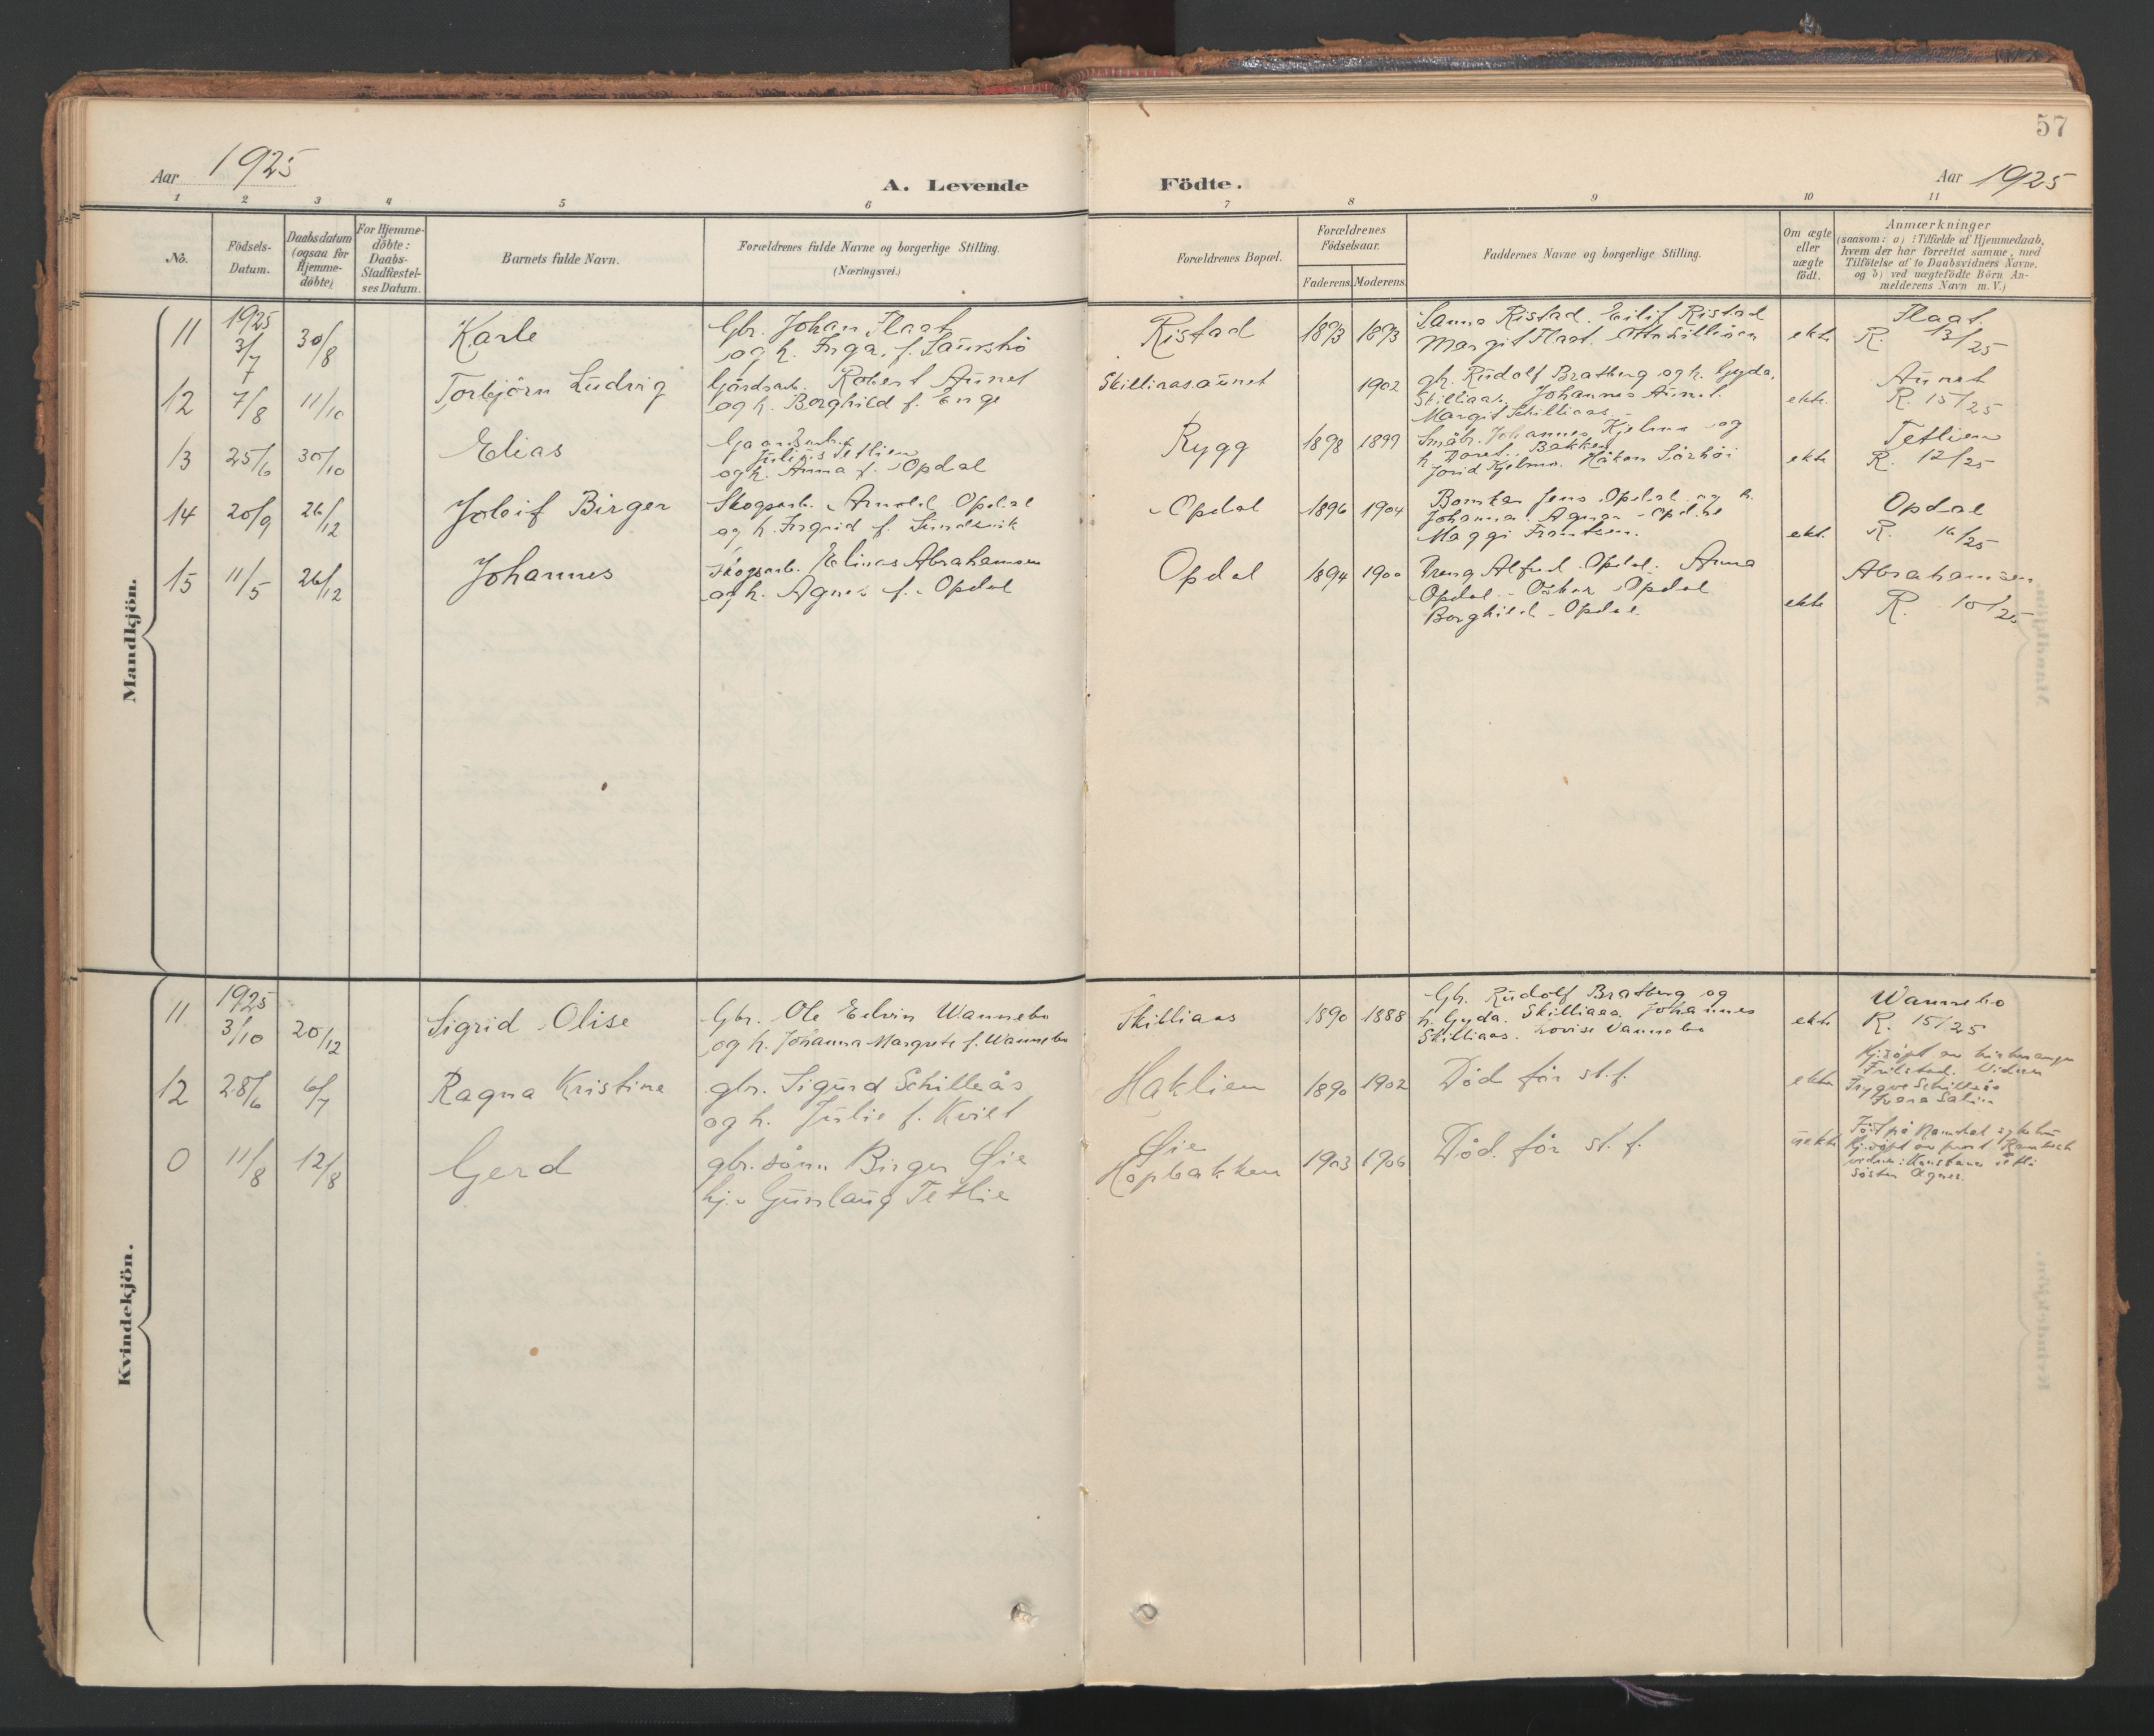 57
Aar 1925
A. Levende
Födte.
Aar 1925
1 2 3 4 5 6 7 8 9 10 11
No.
Födsels-
Datum.
Daabsdatum
(ogsaa for
Hjemme-
döbte)
For Hjemme-
döbte:
Daabs-
Stadfæstel-
ses Datum.
Barnets fulde Navn.
Forældrenes fulde Navne og borgerlige Stilling.
(Næringsvei.)
Forældrenes Bopæl.
Forældrenes
Födselsaar.
Faderens. Moderens.
Faddernes Navne og borgerlige Stilling.
Om ægte
eller
uægte
födt.
Anmærkninger
(saasom: a) : Tilfælde af Hjemmedaab,
hvem der har forrettet samme, med
Tilföielse af to Daabsvidners Navne.
og b) ved uægtefödte Börn An-
melderens Navn m.V.)
Mandkjön.
11 1925 3/7 30/8 Karle
Gbr. Johan Flaat
og h. Inga f.
Ristad 1893 1893
Sanna Ristad. Eilif Ristad
Margit Flaat.
ekte
Flaat
R. 13/25
12 7/8 11/10 Torbjörn Ludvig
Gårdsarb. Robert Aunet
og h. Borghild f. Enge
Skilliaasaunet 1902
gbr. Rudolf Bratberg og h. Gyda.
Skilliaas. Johannes Aunet.
Margit Skilliaas.
ekte.
Aunet
R. 15/25
13 25/6 30/10 Elias
Gaardsarb.
Julius Tetlien
og h. Anna f. Opdal
Rygg 1898 1899
Småbr. Johannes Kjelmo og
h. Bakken
Jorid Kjelmo. Håkon
ekte
Tetlien
R. 12/25
14 20/9 26/12 Joleif Birger
Skogsarb. Arnold Opdal
og h. Ingrid f.
Opdal 1896 1904
Jens Opdal og h.
Johanna. Agnar Opdal
Maggi Frantzen.
ekt.
Opdal
R. 16/25
15 11/5 26/12 Johannes
Skogsarb. Elinas Abrahamsen
og h. Agnes f. Opdal
Opdal 1894 1900
Dreng Alfred Opdal. Anna
Opdal. Oskar Opdal
Borghild Opdal.
ekte
Abrahamsen
R. 10/25
Kvindekjön.
11 1925 3/10 20/12 Sigrid Olise
Gbr. Ole Edvin Wannebo
og h. Johanna Margrete f. Wannebo
Skilliaas 1890 1888
Gbr. Rudolf Bratberg og
h. Gyda. Skilliaas. Johannes
Skilliaas. Lovise Vannebo
ekte
Wannebo
R. 15/25
12 28/6 6/7 Ragna Kristine
gbr. Sigurd Schilleås
og h. Julie f. Kvist
Haklien 1890 1902
Död för st. f.
ekte
Hj.döpt av
Vidner
Trygve Schilleås
0 11/8 12/8 Gerd
gbr. sönn Birger Øie
hj. Gunlaug Tetlie
Øie
Hopbakken 1903 1906
Död för st. f.
uekte
Födt på Namdal sykehus
Hj.döpt av
Söster Agnes.